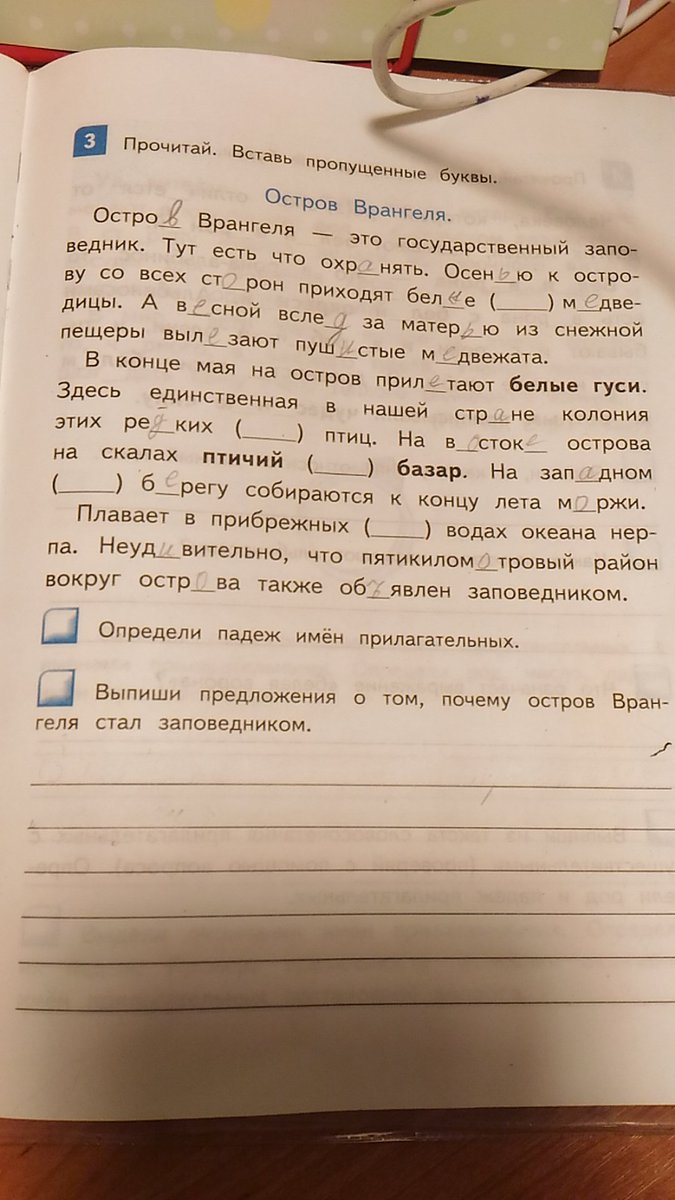 3 Прочитай. Вставь пропущенные буквы.
Остров Врангеля.
Остро_в_ Врангеля — это государственный запо-
ведник. Тут есть что охр_а_нять. Осен_ь_ю к остро-
ву со всех ст_о_рон приходят бел_ы_е (____) м_е_две-
дицы. А в_е_сной всле_д_ за матер_ь_ю из снежной
пещеры выл_е_зают пуш_и_стые м_е_двежата.
В конце мая на остров прил_е_тают белые гуси.
Здесь единственная в нашей стр_а_не колония
этих ре_д_ких (____) птиц. На в_о_сток_е_ острова
на скалах птичий (____) базар. На зап_а_дном
(____) б_е_регу собираются к концу лета м_о_ржи.
Плавает в прибрежных (____) водах океана нер-
па. Неуд_и_вительно, что пятикилом_о_тровый район
вокруг остр_о_ва также об_ъ_явлен заповедником.
Определи падеж имён прилагательных.
Выпиши предложения о том, почему остров Вран-
геля стал заповедником.